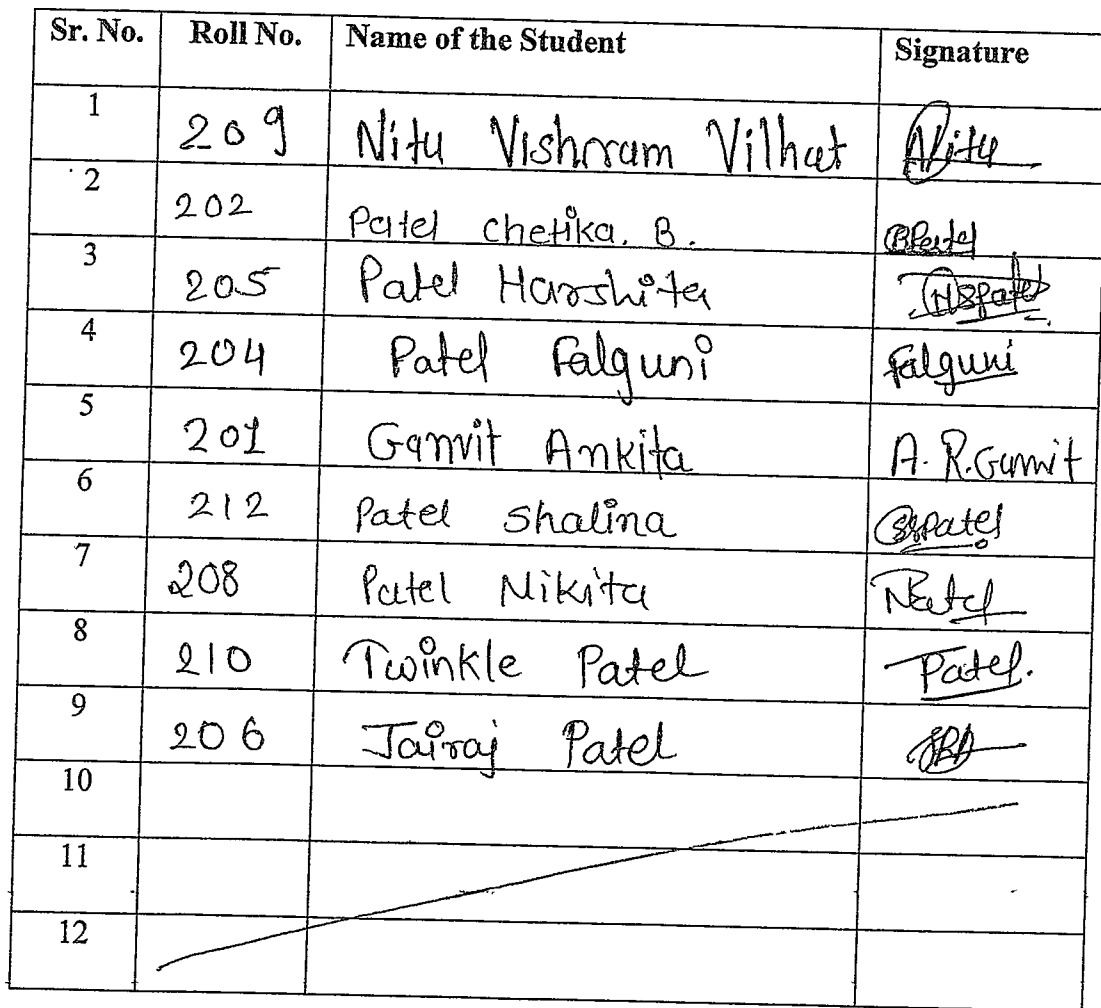 Sr. No. Roll No. Name of the Student Signature
1 209 Nitu Vishram Vilhat Nitu
2 202 Patel Chetika. B. BPatel
3 205 Patel Harshita HSPatel
4 204 Patel Falguni Falguni
5 201 Gamit Ankita A. R. Gamit
6 212 Patel Shalina SSPatel
7 208 Patel Nikita
8 210 Twinkle Patel Patel.
9 206 Jairaj Patel
10
11
12